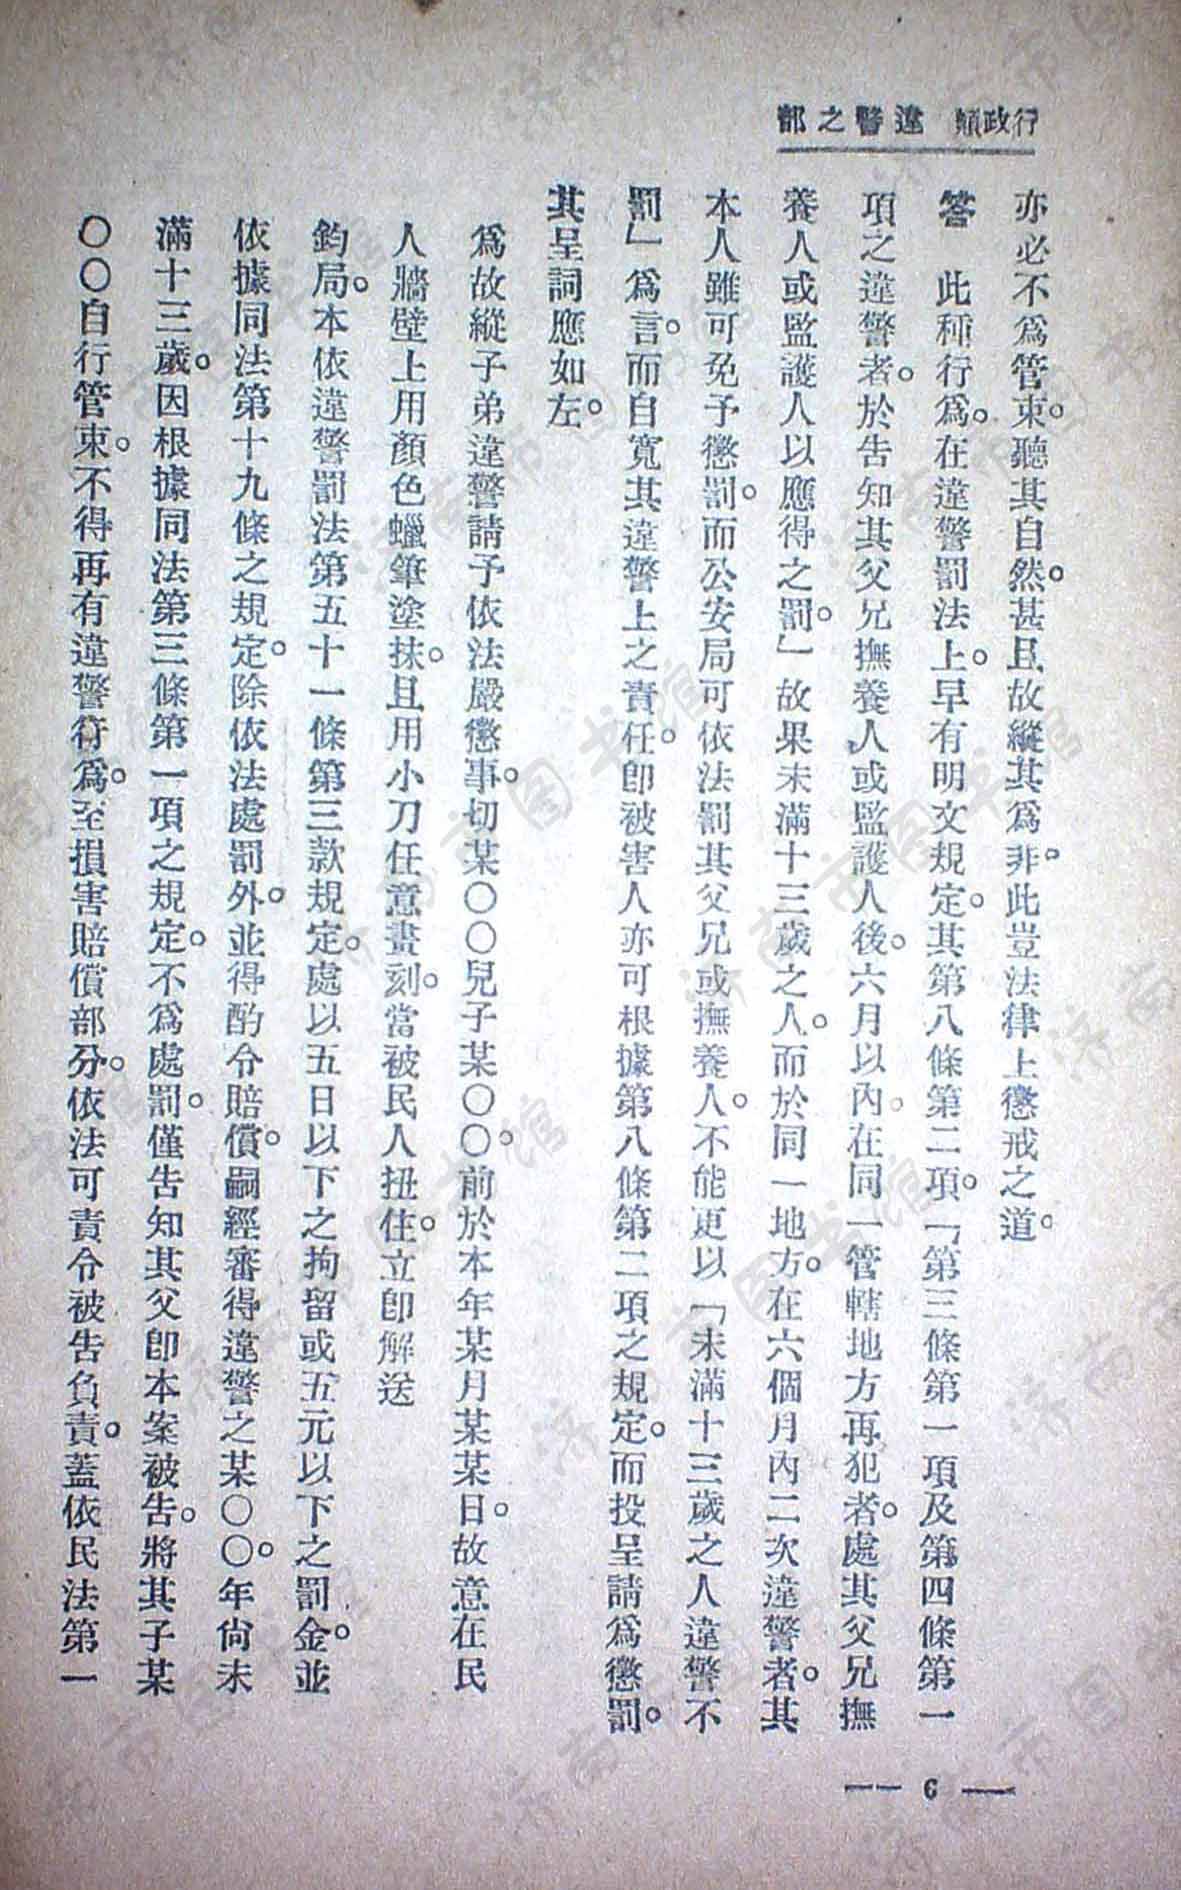 行政類　違警之部
亦必不爲管束。聽其自然。甚且故縱其爲非。此豈法律上懲戒之道。
答　此種行爲。在違警罰法上。早有明文規定。其第八條第二項。「第三條第一項及第四條第一
項之違警者。於告知其父兄撫養人或監護人後。六月以內。在同一管轄地方再犯者。處其父兄撫
養人或監護人以應得之罰。」故果未滿十三歲之人。而於同一地方。在六個月內二次違警者。其
本人雖可免予懲罰。而公安局可依法罰其父兄或撫養人。不能更以「未滿十三歲之人違警不
罰」爲言。而自寬其違警上之責任。卽被害人亦可根據第八條第二項之規定。而投呈請爲懲罰。
其呈詞應如左。
爲故縱子弟違警請予依法嚴懲事。切某〇〇兒子某〇〇。前於本年某月某某日。故意在民
人牆壁上用顏色蠟筆塗抹。且用小刀任意畫刻。當被民人扭住。立卽解送
鈞局。本依違警罰法第五十一條第三款規定。處以五日以下之拘留或五元以下之罰金。並
依據同法第十九條之規定。除依法處罰外。並得酌令賠償。嗣經審得違警之某〇〇。年尙未
滿十三歲。因根據同法第三條第一項之規定。不爲處罰。僅告知其父卽本案被告。將其子某
〇〇自行管束。不得再有違警行爲。至損害賠償部分。依法可責令被告負責。蓋依民法第一
— 6 —
济南市图书馆